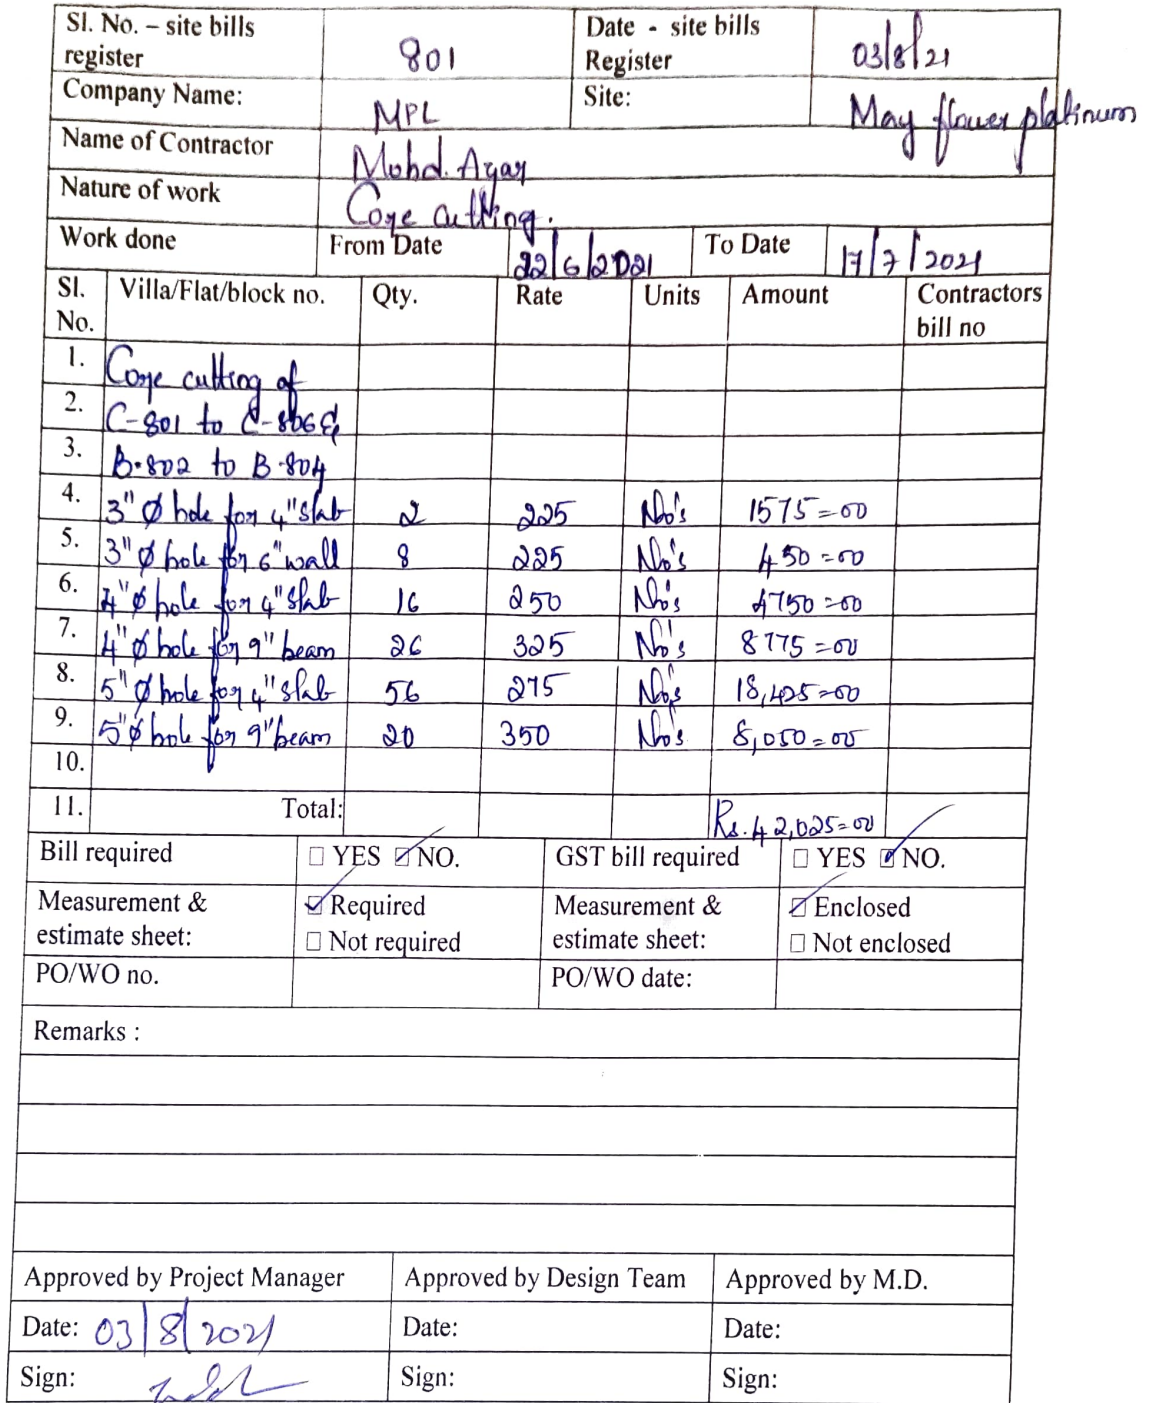 Sl. No. – site bills register 801 Date - site bills Register 03/8/21
Company Name: MPL Site: May flower platinum
Name of Contractor Mohd. Azar
Nature of work Core cutting.
Work done From Date 22/6/2021 To Date 17/7/2021
Sl. No. Villa/Flat/block no. Qty. Rate Units Amount Contractors bill no
1. Core cutting of
2. C-801 to C-806 &
3. B-802 to B-804
4. 3" Ø hole for 4" slab 2 225 No's 1575=00
5. 3" Ø hole for 6" wall 8 225 No's 450=00
6. 4" Ø hole for 4" slab 16 250 No's 4750=00
7. 4" Ø hole for 9" beam 26 325 No's 8775=00
8. 5" Ø hole for 4" slab 56 275 No's 18,425=00
9. 5" Ø hole for 9" beam 20 350 No's 8,050=00
10.
11. Total: Rs. 42,025=00
Bill required ☐ YES ☑ NO. GST bill required ☐ YES ☑ NO.
Measurement & estimate sheet: ☑ Required ☐ Not required Measurement & estimate sheet: ☑ Enclosed ☐ Not enclosed
PO/WO no. PO/WO date:
Remarks :
Approved by Project Manager Approved by Design Team Approved by M.D.
Date: 03/8/2021 Date: Date:
Sign: Sign: Sign: